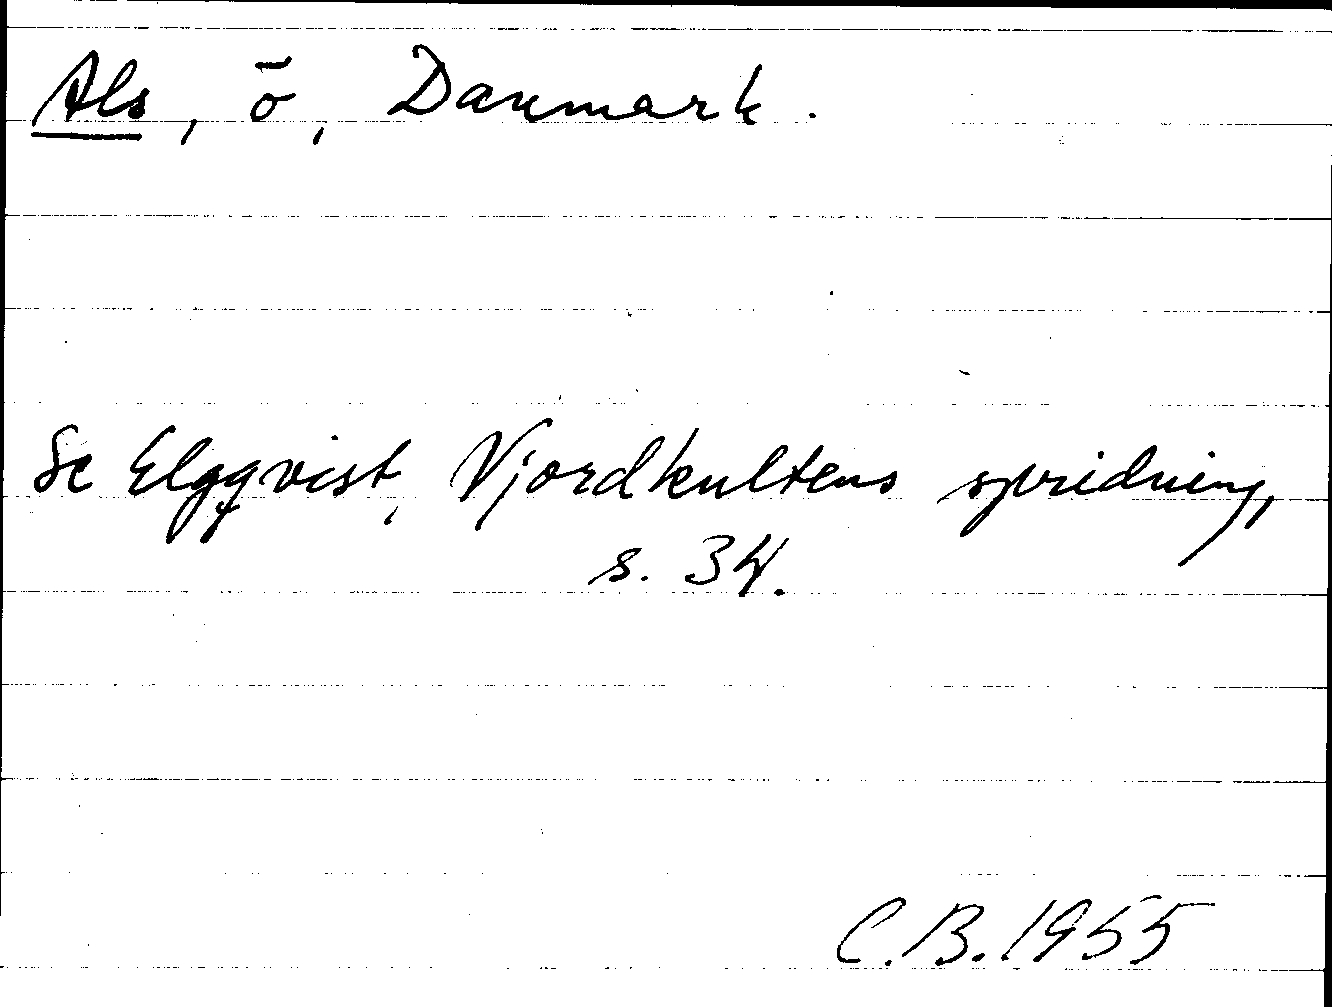 Als, ö, Danmark.
Se Elgqvist, Njordkultens spridning,
s. 34.
C.B. 1955